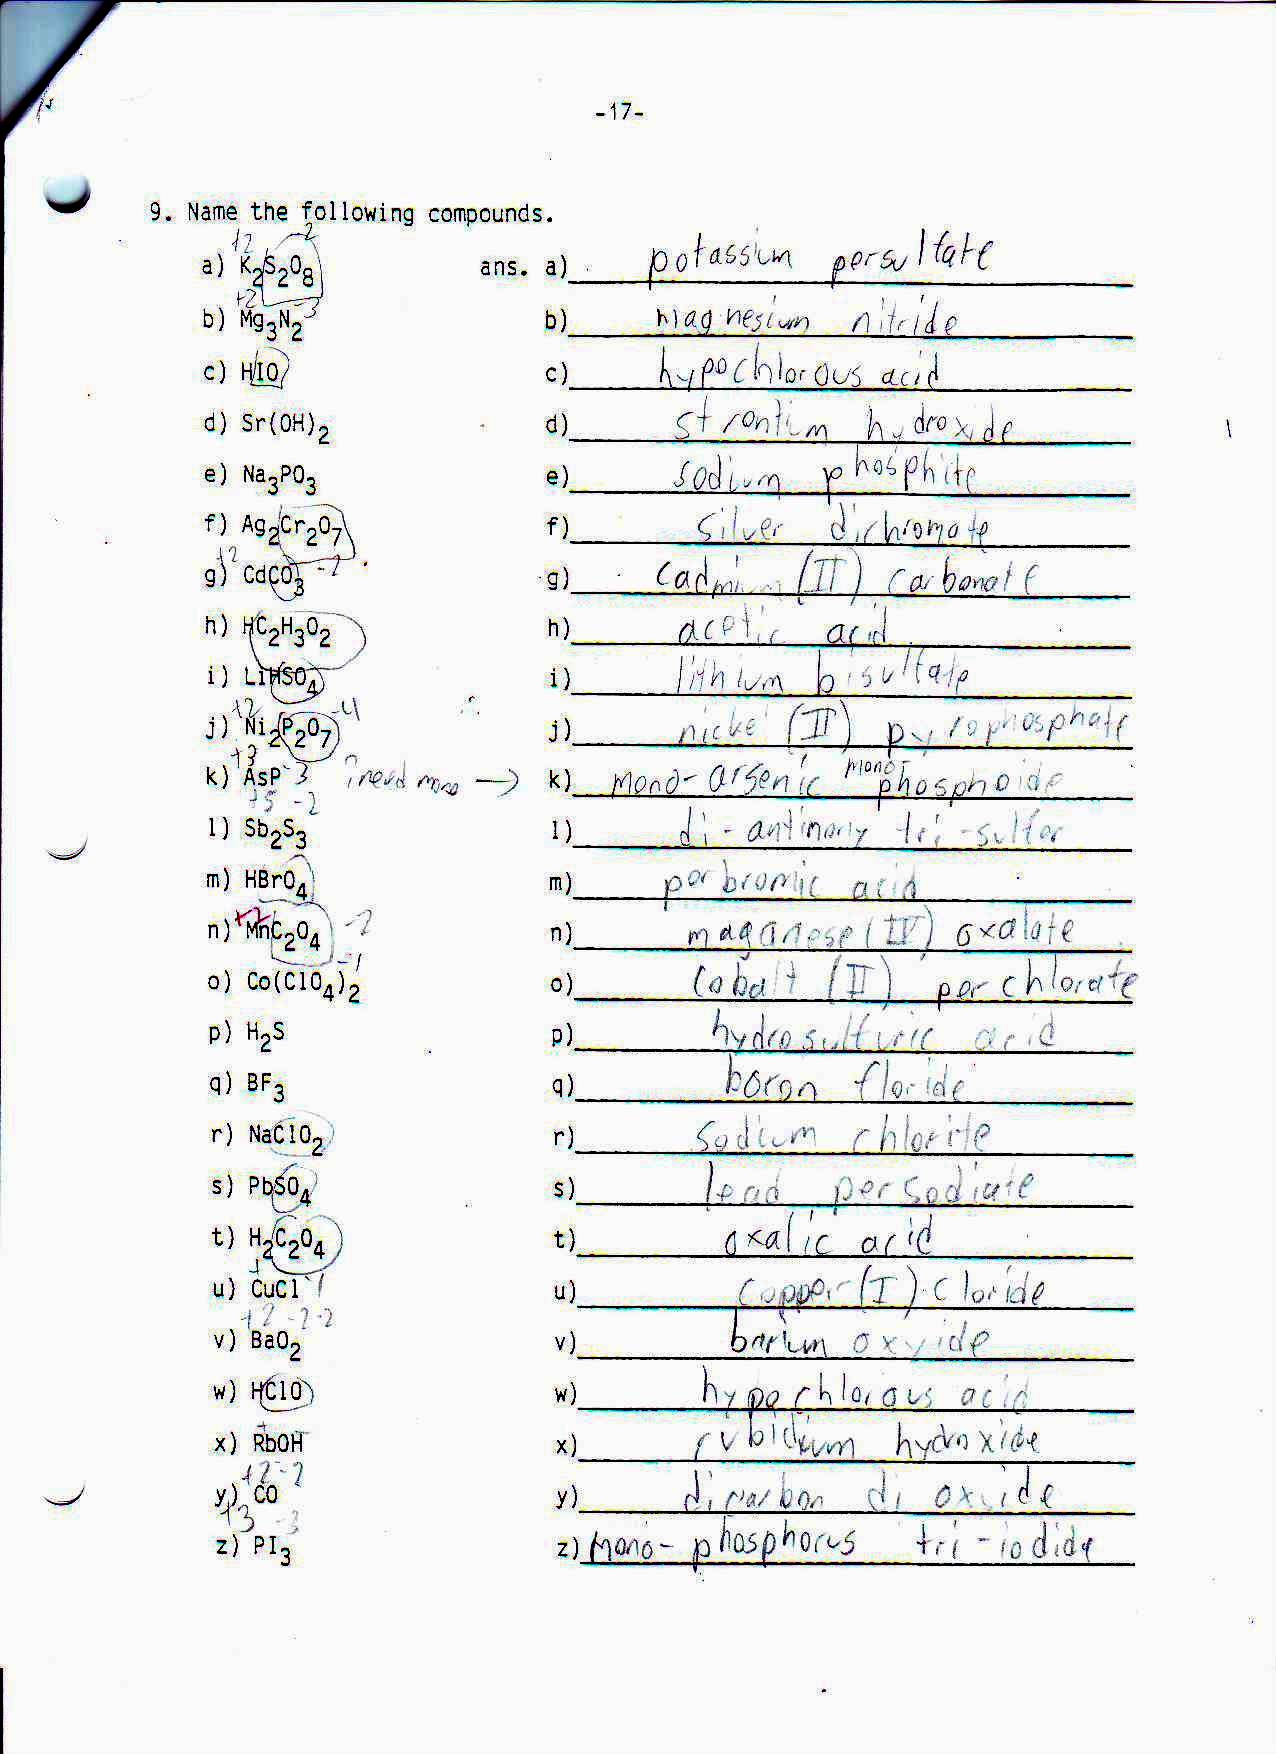 -17-
9. Name the following compounds.
+2 -2
a) K₂S₂O₈ ans. a) potassium persulfate
+2 -3
b) Mg₃N₂ b) magnesium nitride
c) HIO c) hypochlorous acid
d) Sr(OH)₂ d) strontium hydroxide
e) Na₃PO₃ e) sodium phosphite
f) Ag₂Cr₂O₇ f) silver dichromate
+2 -2
g) CdCO₃ g) cadmium (II) carbonate
h) HC₂H₃O₂ h) acetic acid
i) LiHSO₄ i) lithium bisulfate
+2 -4
j) Ni₂P₂O₇ j) nickel (II) pyrophosphate
+3
k) AsP -3 need more → k) mono-arsenic mono phosphoide
+5 -2
l) Sb₂S₃ l) di-antimony tri-sulfor
m) HBrO₄ m) perbromic acid
n) +2 MnC₂O₄ -2 n) maganese (IV) oxalate
-1
o) Co(ClO₄)₂ o) cobalt (II) perchlorate
p) H₂S p) hydrosulfuric acid
q) BF₃ q) boron floride
r) NaClO₂ r) sodium chlorite
s) PbSO₄ s) lead persodiate
t) H₂C₂O₄ t) oxalic acid
u) CuCl -1 u) copper (I) cloride
+2 -2 -2
v) BaO₂ v) barium oxyide
w) HClO w) hypochlorous acid
+ -
x) RbOH x) rubidium hydroxide
+2 -2
y) CO y) dicarbon di oxyide
+3 -3
z) PI₃ z) Mono-phosphorus tri-iodide